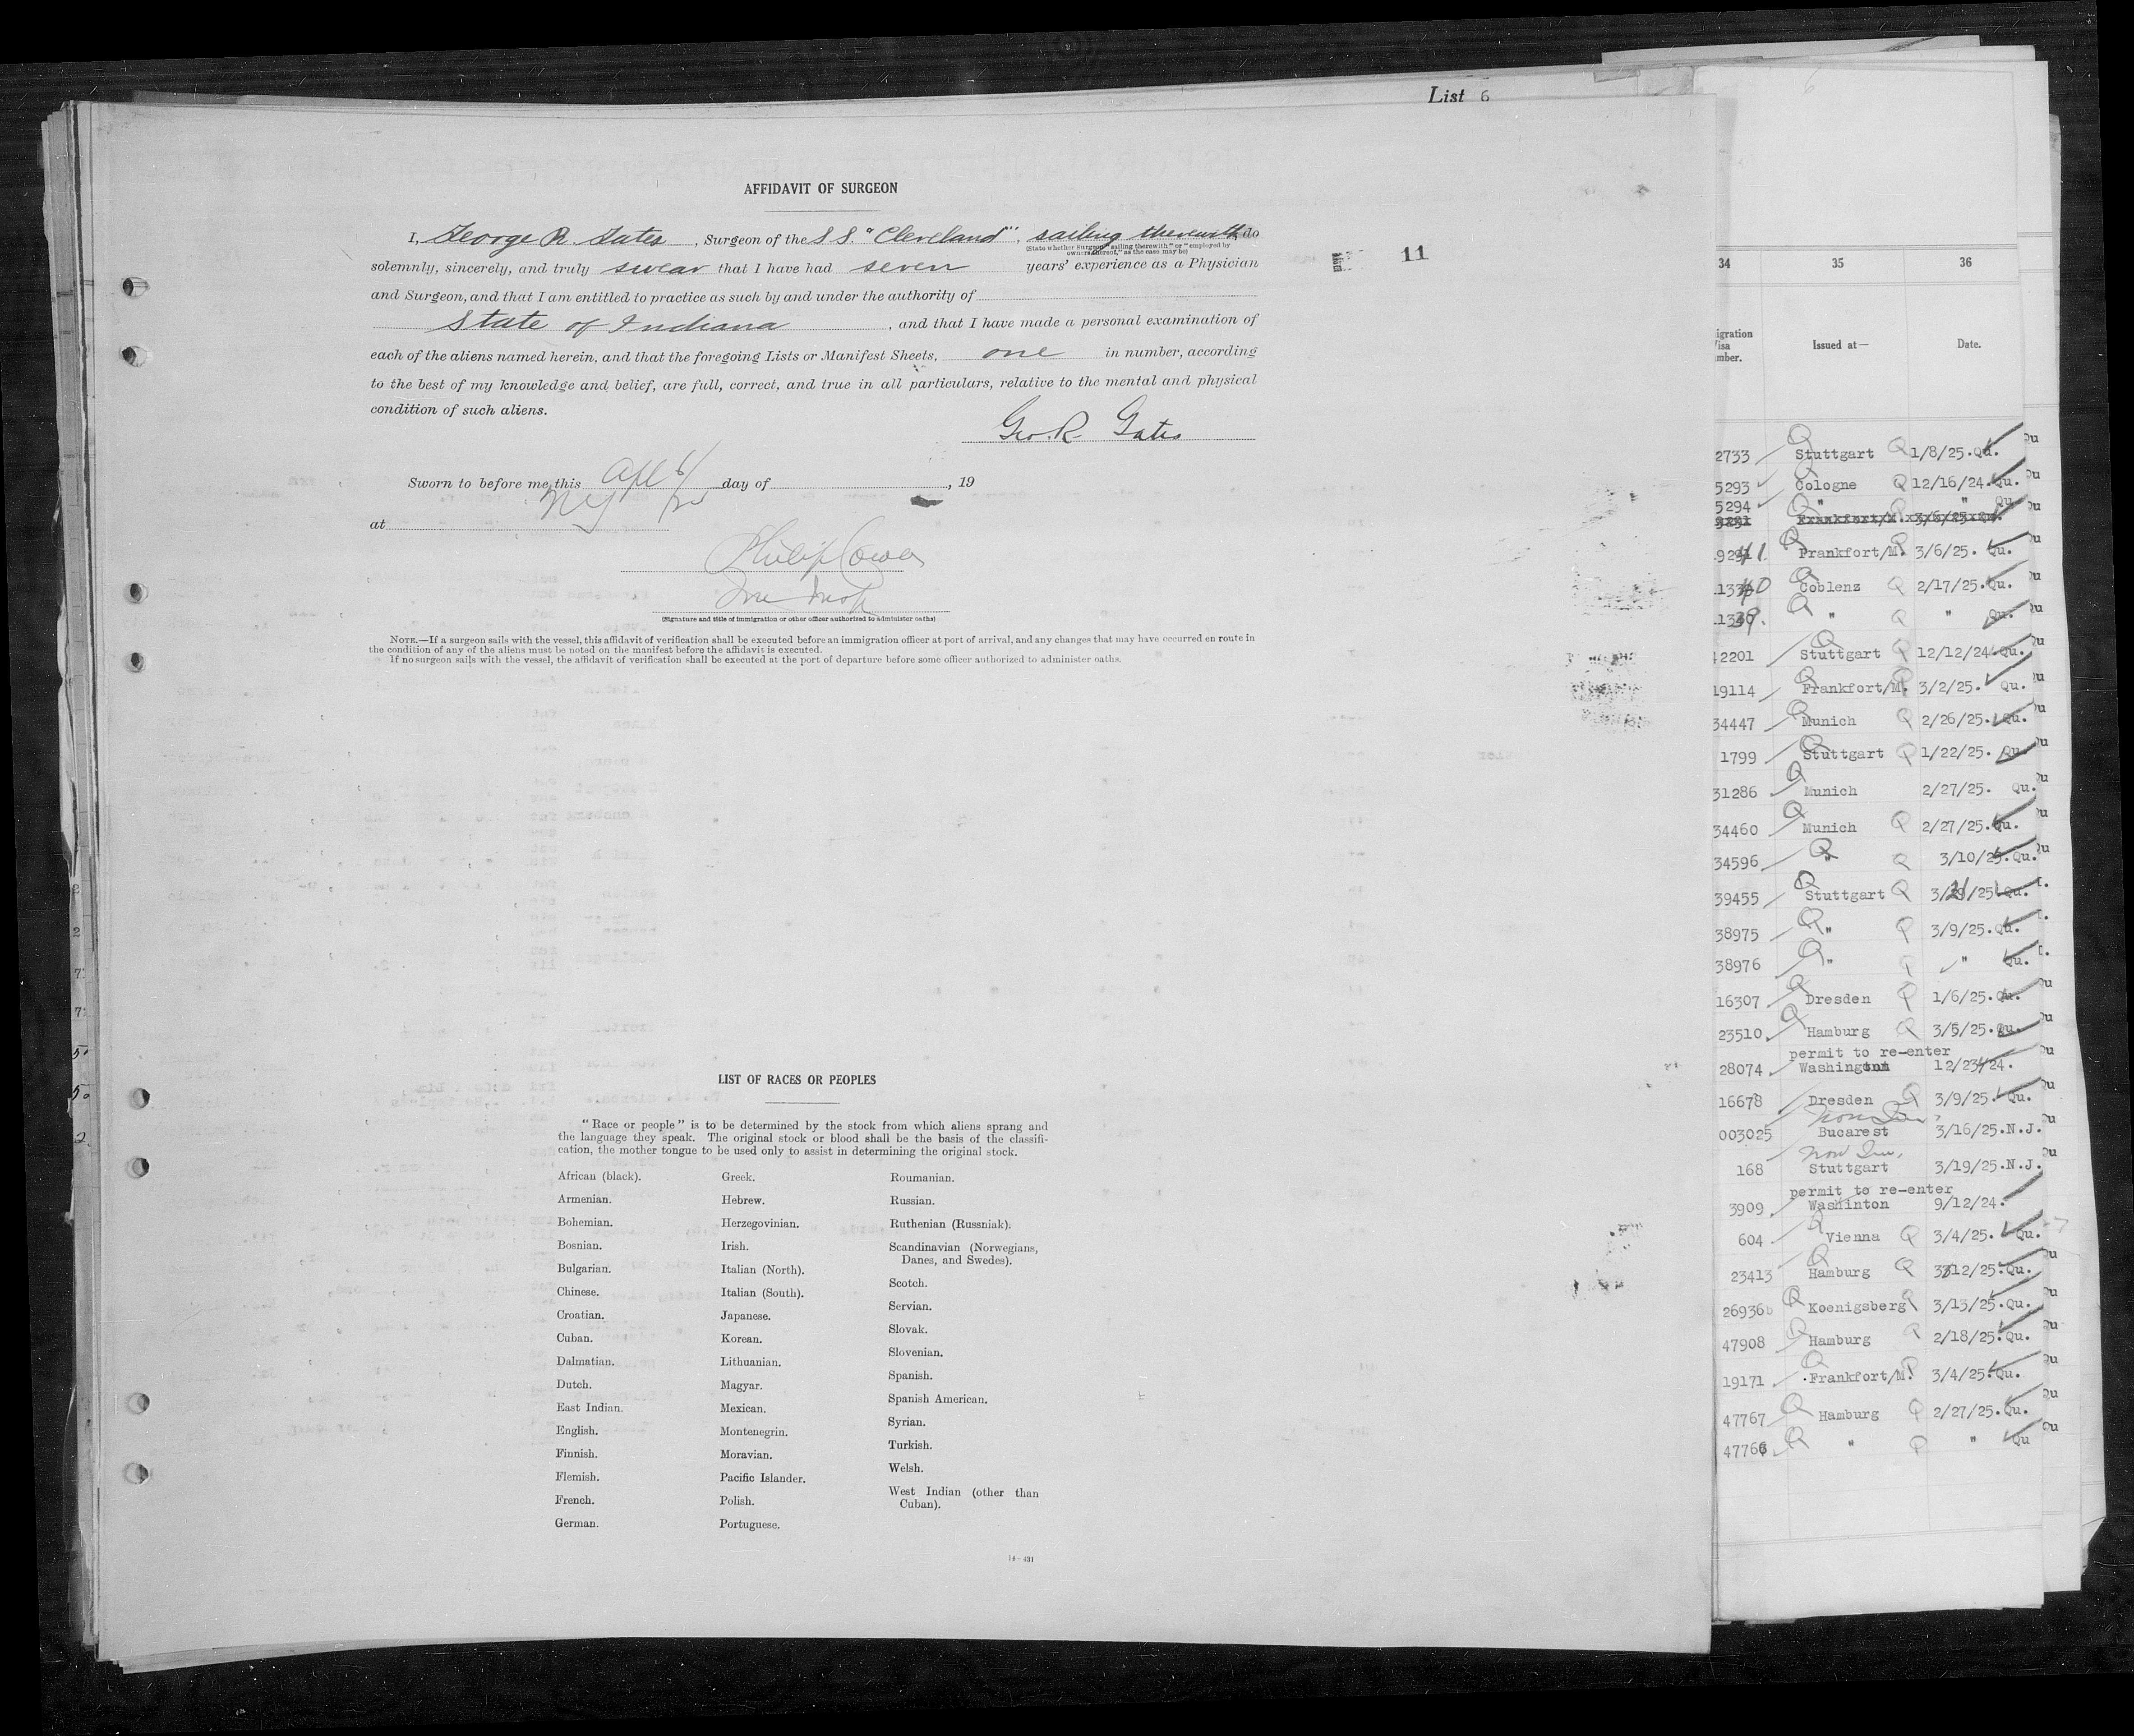 List 6
AFFIDAVIT OF SURGEON
I, George R. Gates, Surgeon of the S S. "Cleveland", sailing therewith, do
(State whether Surgeon "sailing therewith" or "employed by
owners thereof," as the case may be)
solemnly, sincerely, and truly swear that I have had seven years' experience as a Physician
and Surgeon, and that I am entitled to practice as such by and under the authority of
State of Indiana, and that I have made a personal examination of
each of the aliens named herein, and that the foregoing Lists or Manifest Sheets, one in number, according
to the best of my knowledge and belief, are full, correct, and true in all particulars, relative to the mental and physical
condition of such aliens.
Geo. R. Gates
11
Sworn to before me this Apl 6/ day of , 19
at NY
(Signature and title of immigration or other officer authorized to administer oaths)
NOTE.—If a surgeon sails with the vessel, this affidavit of verification shall be executed before an immigration officer at port of arrival, and any changes that may have occurred en route in
the condition of any of the aliens must be noted on the manifest before the affidavit is executed.
If no surgeon sails with the vessel, the affidavit of verification shall be executed at the port of departure before some officer authorized to administer oaths.
LIST OF RACES OR PEOPLES
"Race or people" is to be determined by the stock from which aliens sprang and
the language they speak. The original stock or blood shall be the basis of the classifi-
cation, the mother tongue to be used only to assist in determining the original stock.
African (black).
Armenian.
Bohemian.
Bosnian.
Bulgarian.
Chinese.
Croatian.
Cuban.
Dalmatian.
Dutch.
East Indian.
English.
Finnish.
Flemish.
French.
German.
Greek.
Hebrew.
Herzegovinian.
Irish.
Italian (North).
Italian (South).
Japanese.
Korean.
Lithuanian.
Magyar.
Mexican.
Montenegrin.
Moravian.
Pacific Islander.
Polish.
Portuguese.
Roumanian.
Russian.
Ruthenian (Russniak).
Scandinavian (Norwegians,
Danes, and Swedes).
Scotch.
Servian.
Slovak.
Slovenian.
Spanish.
Spanish American.
Syrian.
Turkish.
Welsh.
West Indian (other than
Cuban).
14—431
34 35 36
igration
Visa
mber.
Issued at—
Date.
2733 Stuttgart 1/8/25. Qu.
5293 Cologne 12/16/24. Qu.
5294 " " Qu.
Frankfort/M. 3/6/25. Qu.
Coblenz 2/17/25. Qu.
" " Qu.
2201 Stuttgart 12/12/24 Qu.
19114 Frankfort/M. 3/2/25. Qu.
34447 Munich 2/26/25. Qu.
1799 Stuttgart 1/22/25. Qu.
31286 Munich 2/27/25. Qu.
34460 Munich 2/27/25. Qu.
34596 " 3/10/25. Qu.
39455 Stuttgart Qu.
38975 " 3/9/25. Qu.
38976 " " Qu.
16307 Dresden 1/6/25. Qu.
23510 Hamburg 3/5/25. Qu.
permit to re-enter
28074 12/23/24.
16678 Dresden 3/9/25. Qu.
003025 Bucarest 3/16/25. N.J.
168 Stuttgart 3/19/25. N.J.
permit to re-enter
3909 Washinton 9/12/24.
604 Vienna 3/4/25. Qu.
23413 Hamburg Qu.
26936 Koenigsberg 3/13/25. Qu.
47908 Hamburg 2/18/25. Qu.
19171 Frankfort/M. 3/4/25. Qu.
47767 Hamburg 2/27/25. Qu.
47766 " " Qu